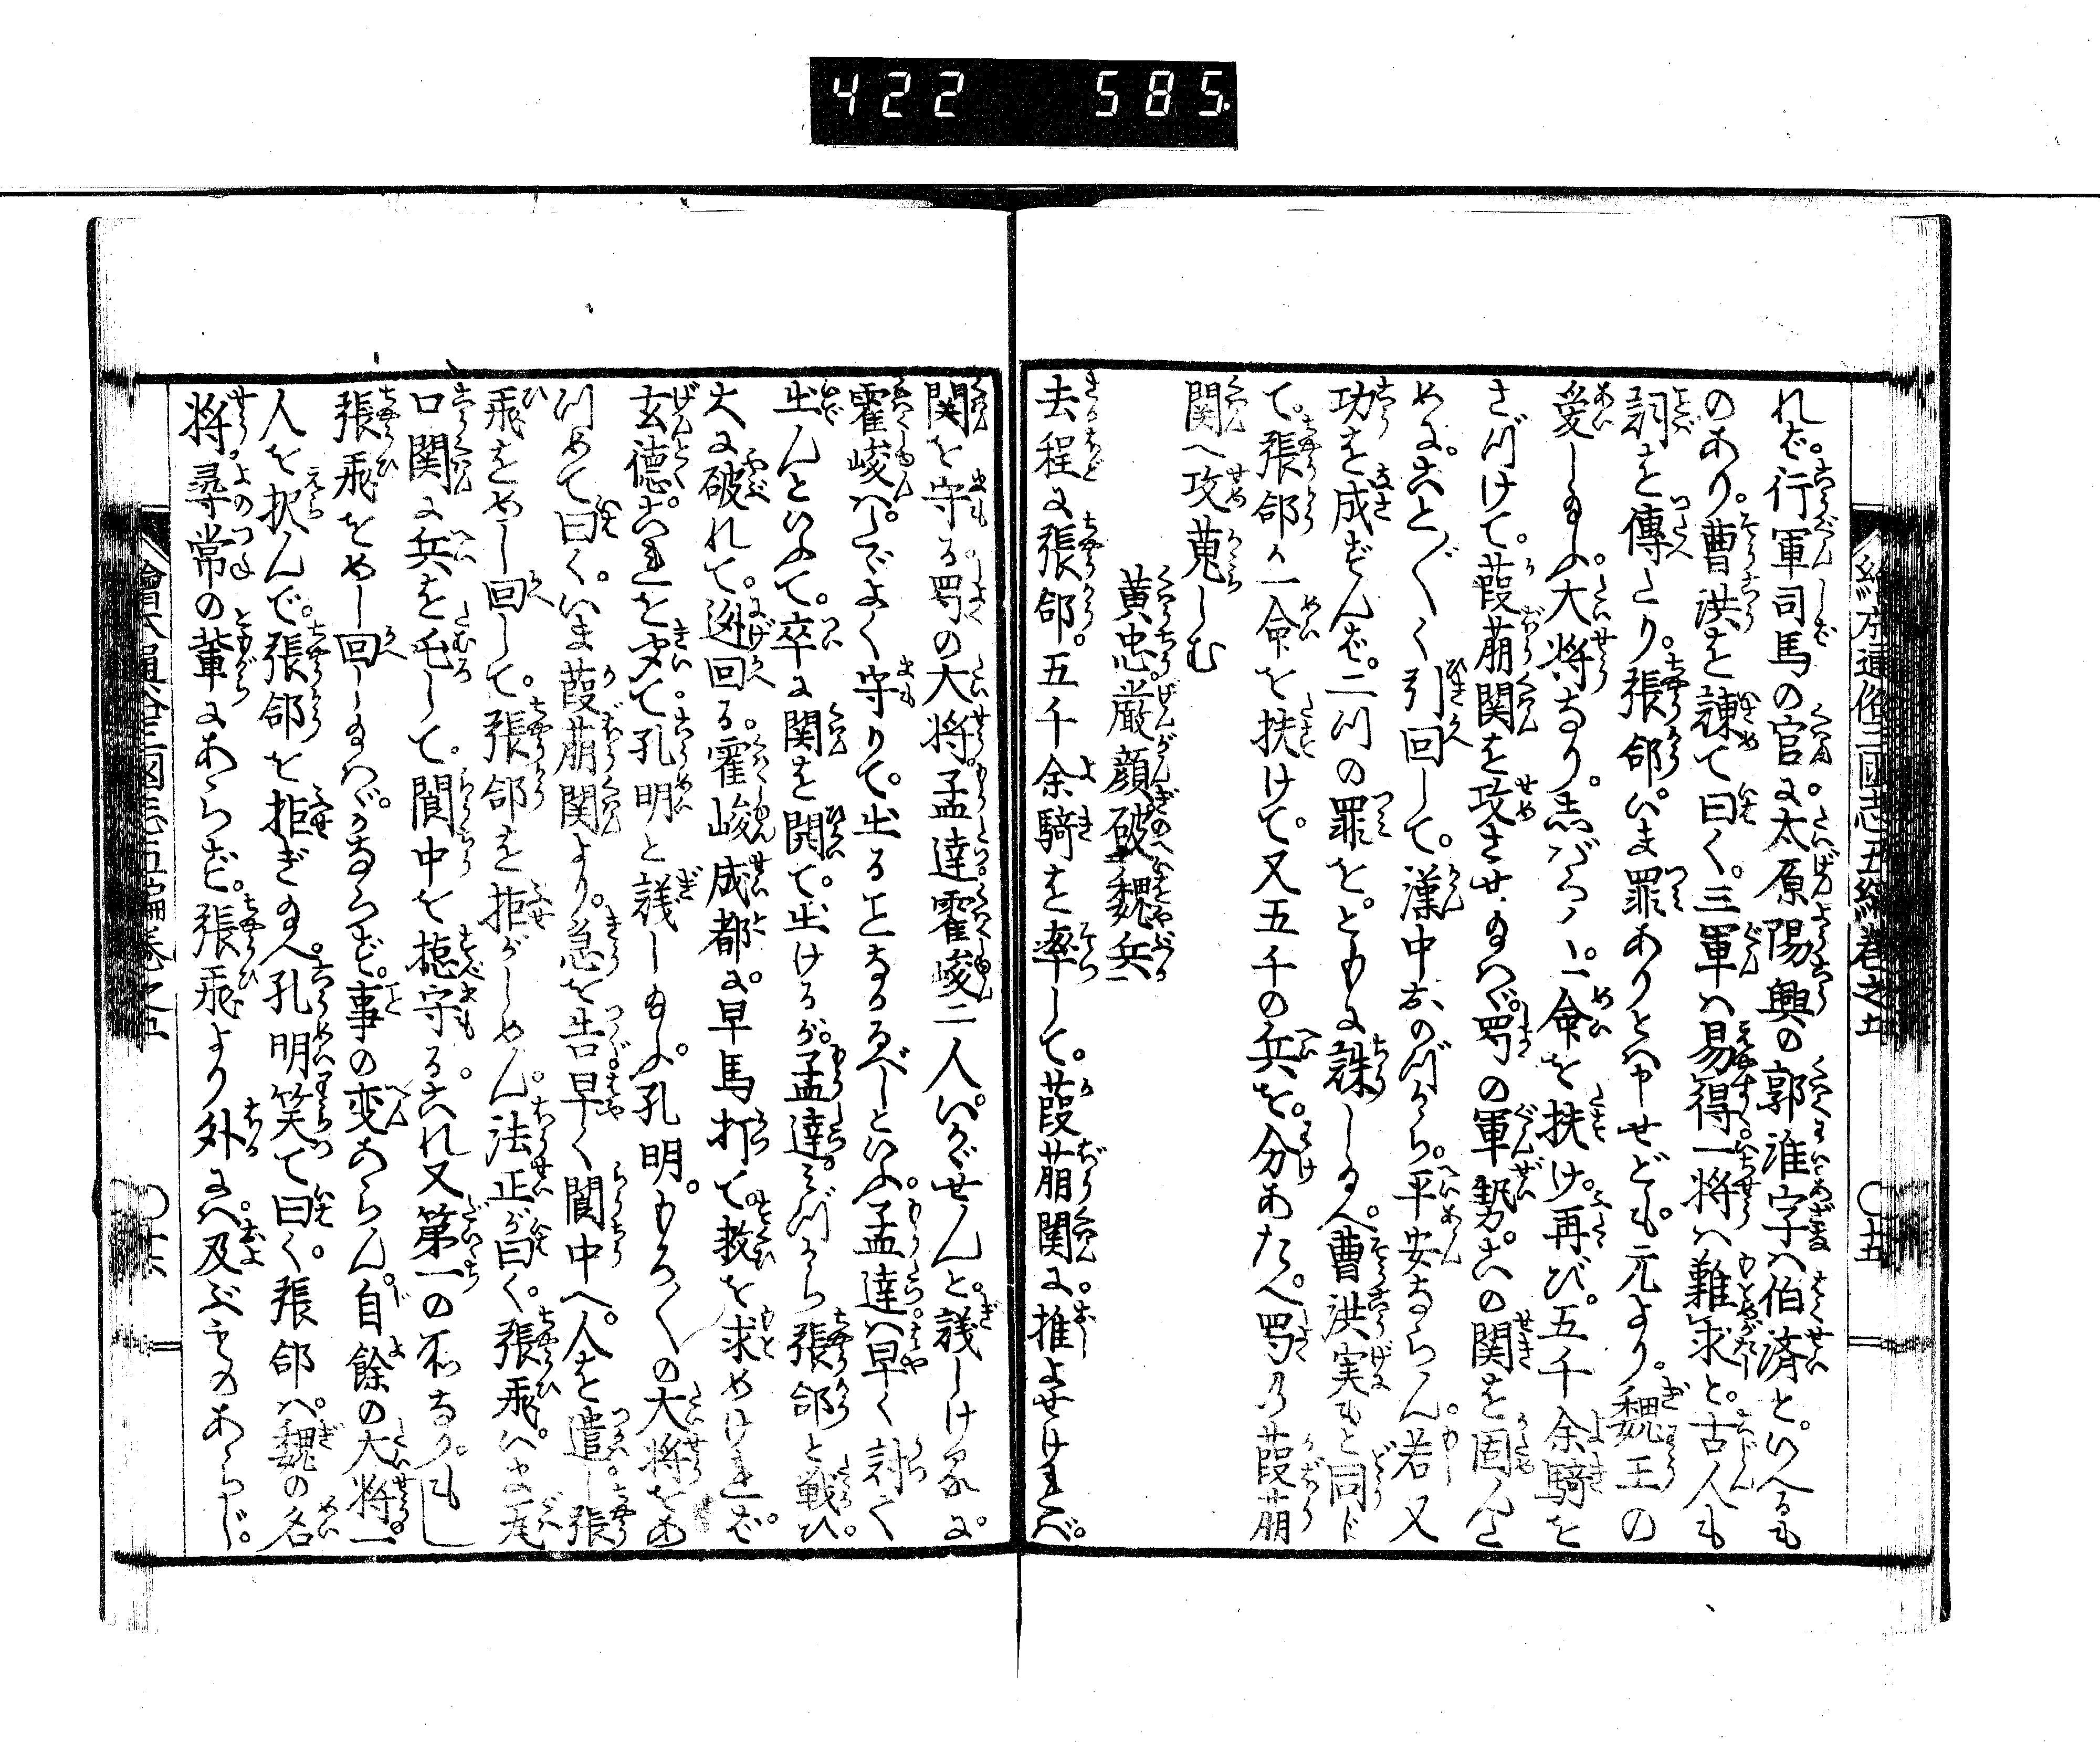 422 585
れば。行軍司馬の官に。太原陽興の郭淮字は伯済と。いへるも
のあり。曹洪を諌て曰く。三軍は易得一将は難求と。古人も
詞を傳たり。張郃。いま罪ありとは申せども。元より。魏王の
愛し給ふ。大将なり。しばらく。一命を扶け。再び。五千余騎を
さづけて。葭萌関を攻させ給へば。蜀の軍勢。この関を固んた
めに。こと〴〵く引回して。漢中おのづから。平安ならん。若又
功を成ずんば。二ツの罪を。ともに誅し給へ。曹洪実もと同ド
て。張郃が一命を扶けて。又五千の兵を。分あたへ。蜀の葭萌
関へ攻蒐しむ
黄忠厳顔破魏兵
去程に張郃。五千余騎を率して。葭萌関に。推よせければ。
関を守る。蜀の大将。孟達霍峻二人。いかゞせんと。議しけるに。
霍峻は。たゞよく守りて。出ることなかるべしといふ。孟達は早く討て
出んといふて。卒に関を開て。出けるが。孟達。みづから張郃と戦ひ。
大に破れて。迯回る。霍峻成都に。早馬打て。救を求めければ。
玄徳。これを聞て。孔明と議し給ふ。孔明。もろ〳〵の大将をあ
つめて曰く。いま葭萌関より。急を告。早く閬中へ。人を遣し。張
飛をめし回して。張郃を拒がしめん。法正が曰く。張飛は。いま瓦
口関に兵を屯して。閬中を摠守る。これ又第一の所なり。もし
張飛をめし回し給はゞ。かならず。事の変あらん。自餘の大将一
人を択んで。張郃を拒ぎ給へ。孔明笑て曰く。張郃は。魏の名
将。尋常の輩にあらず。張飛より外には。及ぶものあらじ。